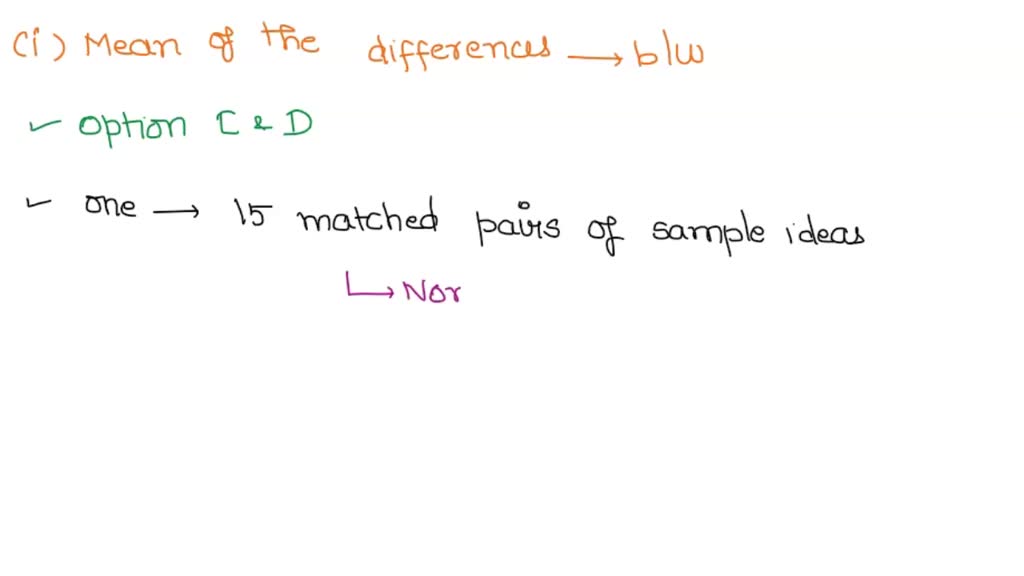 (i) Mean of the differences → b/w
✓ option C & D
✓ one → 15 matched pairs of sample ideas
↳ Nor